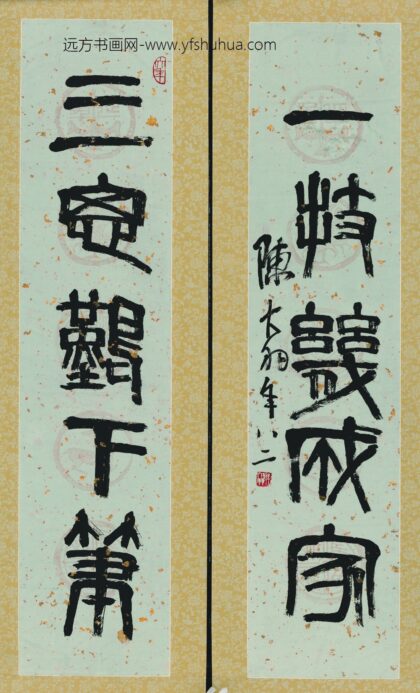 远方书画网-www.yfshuhua.com
一技幾成家
陳大羽年八二
三思難下筆